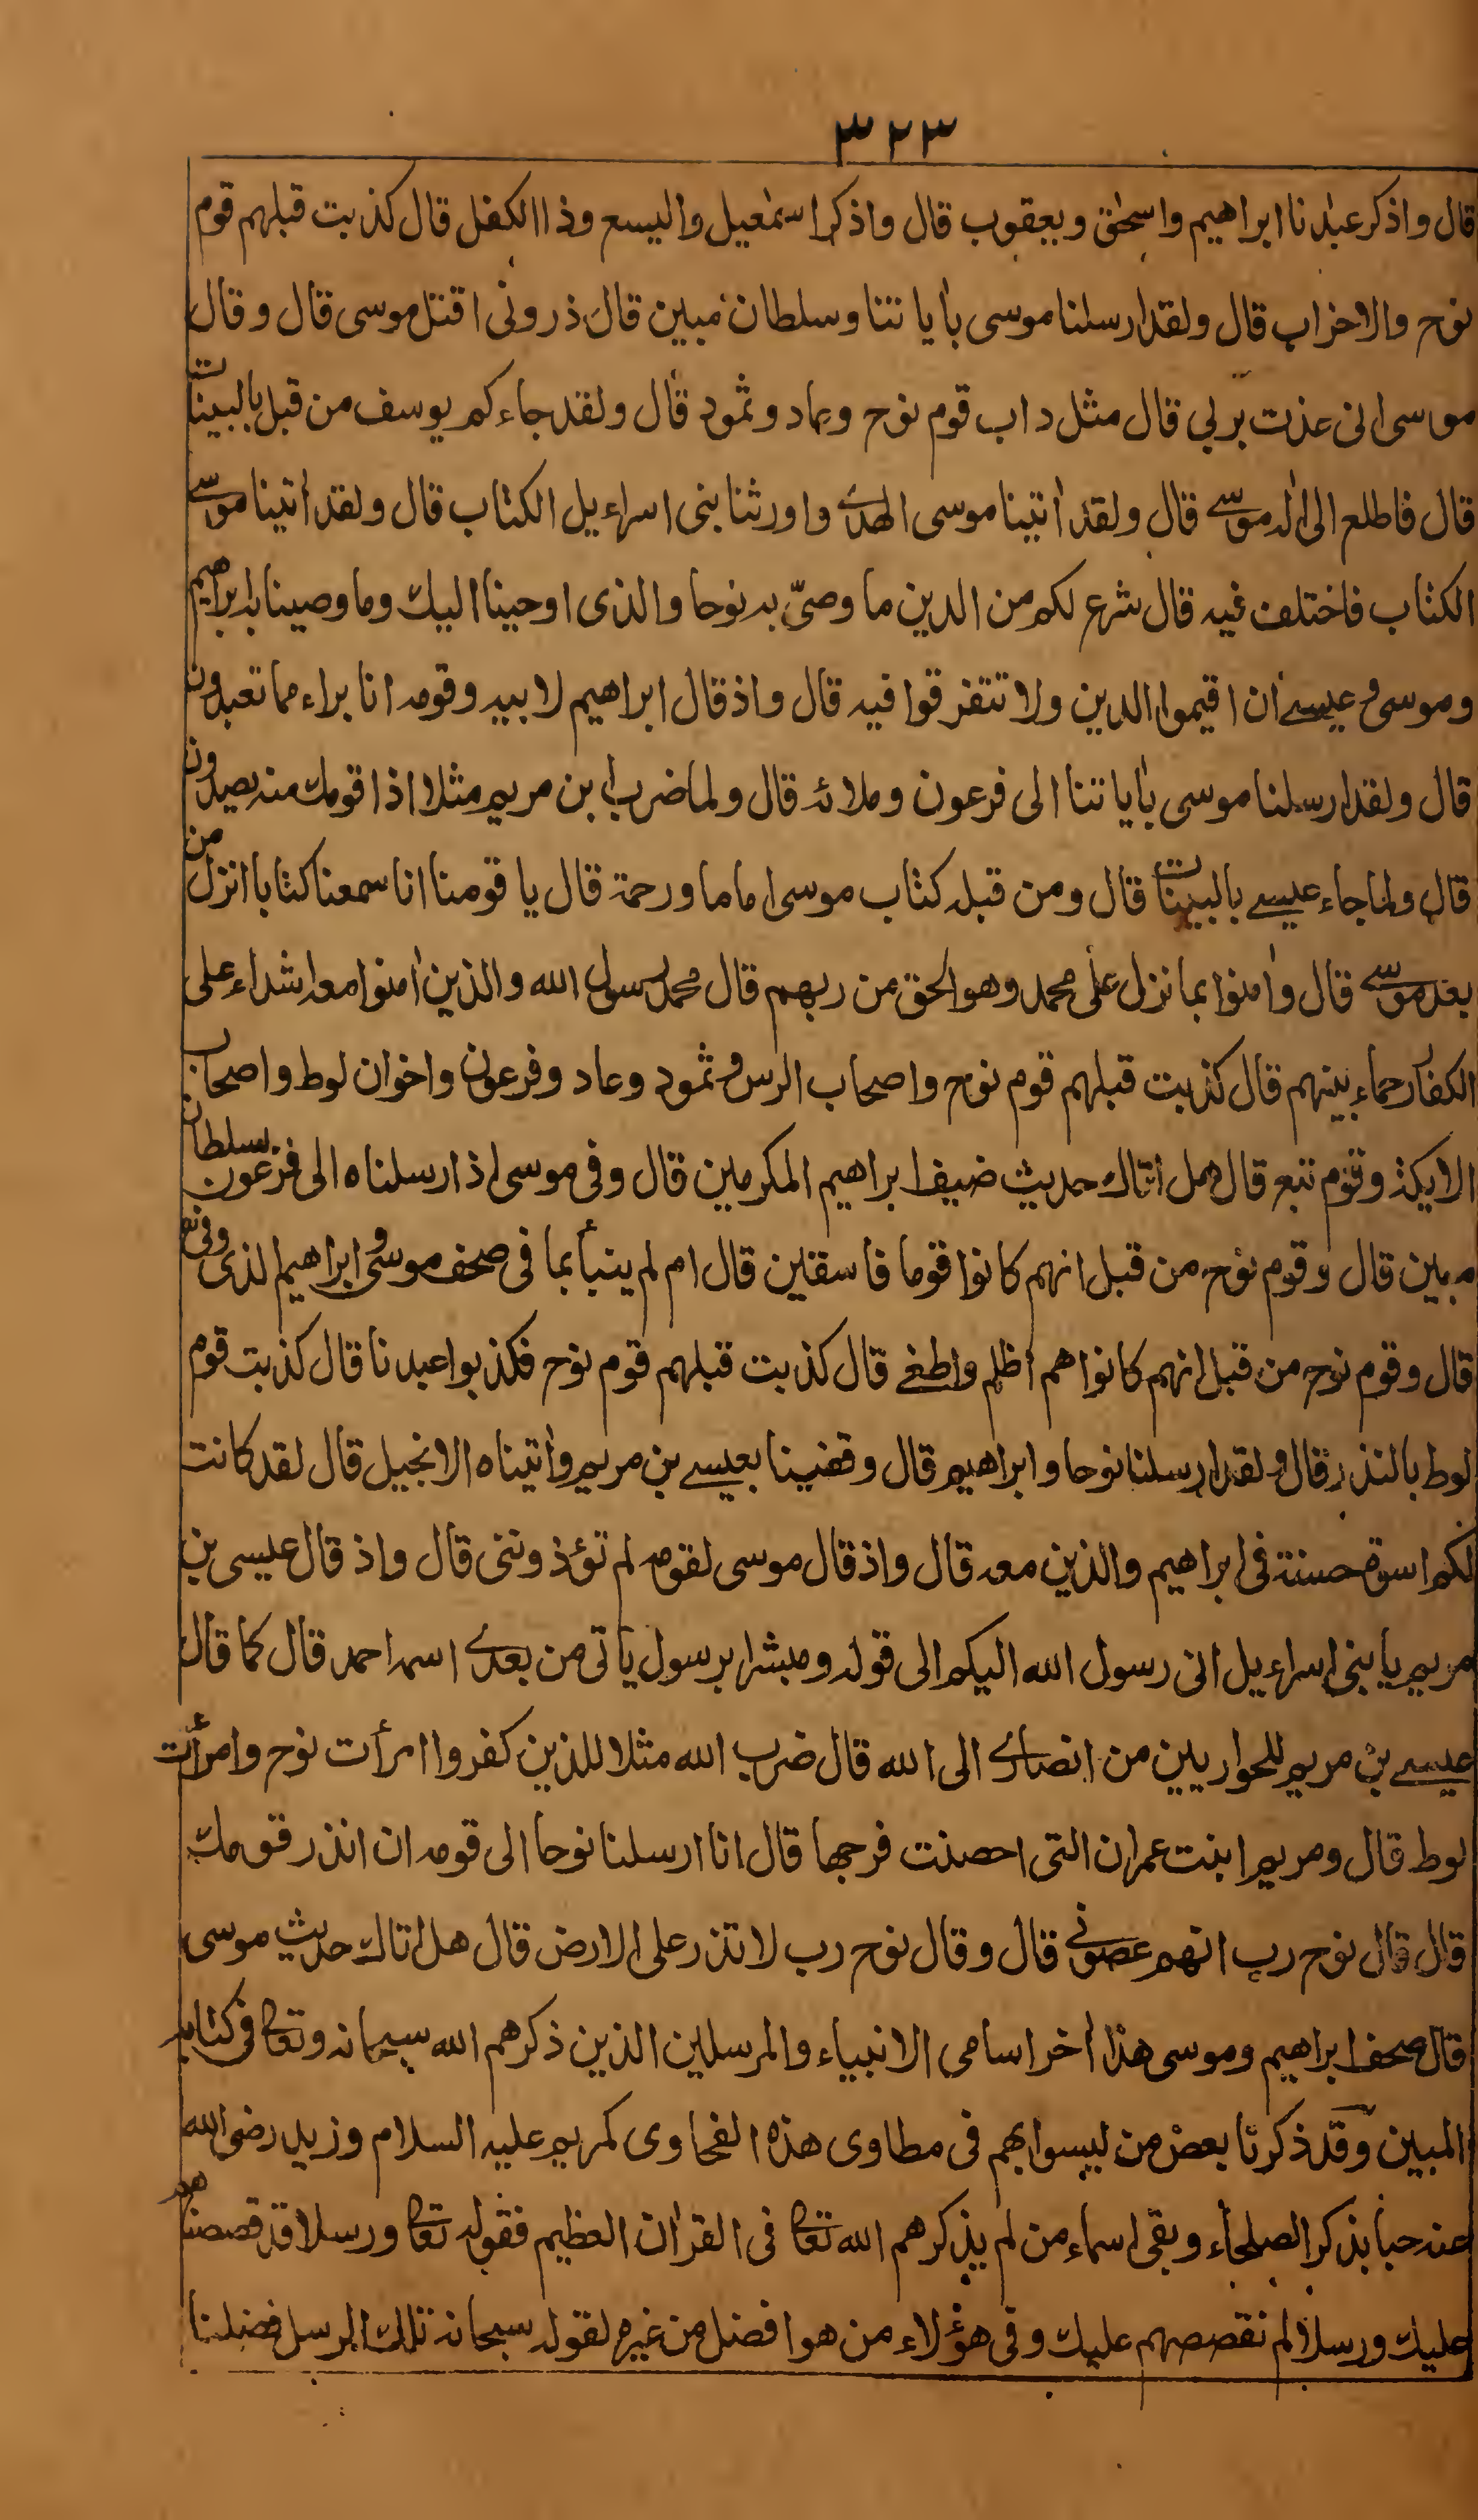 ٣٢٣
قال واذكر عبدنا ابراهيم واسحٰق ويعقوب قال واذكر اسمٰعيل واليسع وذا الكفل قال كذبت قبلهم قوم
نوح والاحزاب قال ولقد ارسلنا موسى بأياتنا وسلطان مبين قال ذرونى اقتل موسى قال وقال
موسى انى عذت بربى قال مثل داب قوم نوح وعاد وثمود قال ولقد جاءكم يوسف من قبل بالبينات
قال فاطلع الى اله موسى قال ولقد اٰتينا موسى الهدى واورثنا بنى اسراءيل الكتاب قال ولقد اٰتينا موسى
الكتاب فاختلف فيه قال شرع لكم من الدين ما وصّى به نوحا والذى اوحينا اليك وما وصينا به ابراهيم
وموسى وعيسى ان اقيموا الدين ولا تتفرقوا فيه قال واذ قال ابراهيم لابيه وقومه انا براء مما تعبدون
قال ولقد ارسلنا موسى بأياتنا الى فرعون وملائه قال ولما ضرب ابن مريم مثلا اذا قومك منه يصدون
قال ولما جاء عيسى بالبينات قال ومن قبله كتاب موسى اماما ورحمة قال يا قومنا انا سمعنا كتابا انزل من
بعد موسى قال واٰمنوا بما نزل على محمد وهو الحق من ربهم قال محمد رسول الله والذين اٰمنوا معه اشداء على
الكفار رحماء بينهم قال كذبت قبلهم قوم نوح واصحاب الرس وثمود وعاد وفرعون واخوان لوط واصحاب
الايكة وقوم تبع قال هل اتاك حديث ضيف ابراهيم المكرمين قال وفى موسى اذ ارسلناه الى فرعون بسلطان
مبين قال وقوم نوح من قبل انهم كانوا قوما فاسقين قال ام لم ينبأ بما فى صحف موسى وابراهيم الذى وفى
قال وقوم نوح من قبل انهم كانوا هم اظلم واطغى قال كذبت قبلهم قوم نوح فكذبوا عبدنا قال كذبت قوم
لوط بالنذر قال ولقد ارسلنا نوحا وابراهيم قال وقفينا بعيسى بن مريم واٰتيناه الانجيل قال لقد كانت
لكم اسوة حسنة فى ابراهيم والذين معه قال واذ قال موسى لقومه لم تؤذوننى قال واذ قال عيسى بن
مريم يا بنى اسراءيل انى رسول الله اليكم الى قوله ومبشرا برسول ياتى من بعدى اسمه احمد قال كما قال
عيسى بن مريم للحواريين من انصارى الى الله قال ضرب الله مثلا للذين كفروا امرأت نوح وامرأت
لوط قال ومريم ابنت عمران التى احصنت فرجها قال انا ارسلنا نوحا الى قومه ان انذر قومك
قال قال نوح رب انهم عصونى قال وقال نوح رب لا تذر على الارض قال هل اتاك حديث موسى
قال صحف ابراهيم وموسى هذا اٰخر اسامى الانبياء والمرسلين الذين ذكرهم الله سبحانه وتعا فى كتابه
المبين وقد ذكرنا بعض من ليسوا بهم فى مطاوى هذه الفحاوى كمريم عليه السلام وزيد رضى الله
عنه حبا بذكر الصلحاء وبقى اسماء من لم يذكرهم الله تعا فى القراٰن العظيم فقوله تعا ورسلا قد قصصناهم
عليك ورسلا لم نقصصهم عليك وفى هؤلاء من هو افضل من غيره لقوله سبحانه تلك الرسل فضلنا